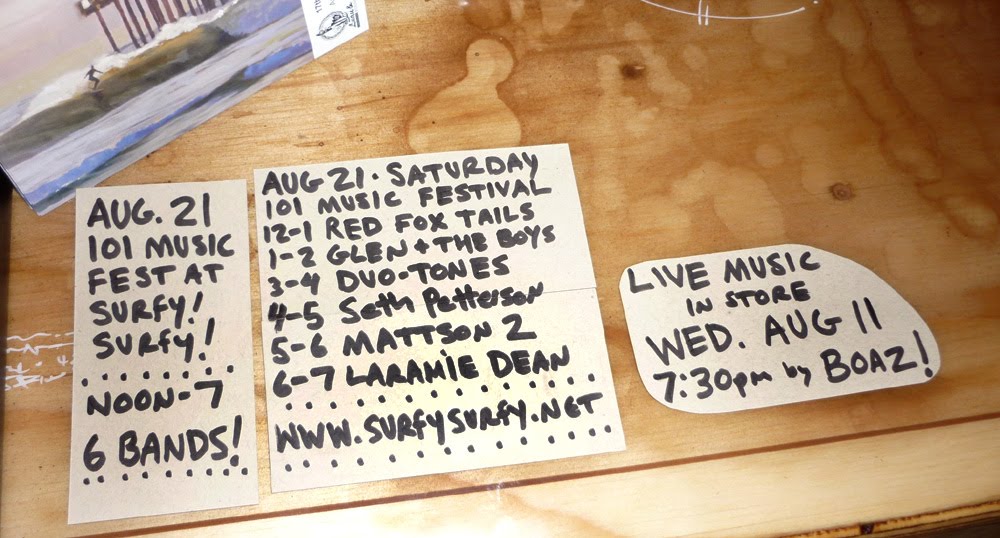 AUG. 21
101 MUSIC
FEST AT
SURFY!
SURFY!
NOON-7
6 BANDS!
AUG 21 · SATURDAY
101 MUSIC FESTIVAL
12-1 RED FOX TAILS
1-2 GLEN + THE BOYS
3-4 DUO-TONES
4-5 Seth Petterson
5-6 MATTSON 2
6-7 LARAMIE DEAN
WWW.SURFYSURFY.NET
LIVE MUSIC
IN STORE
WED. AUG 11
7:30pm by BOAZ!